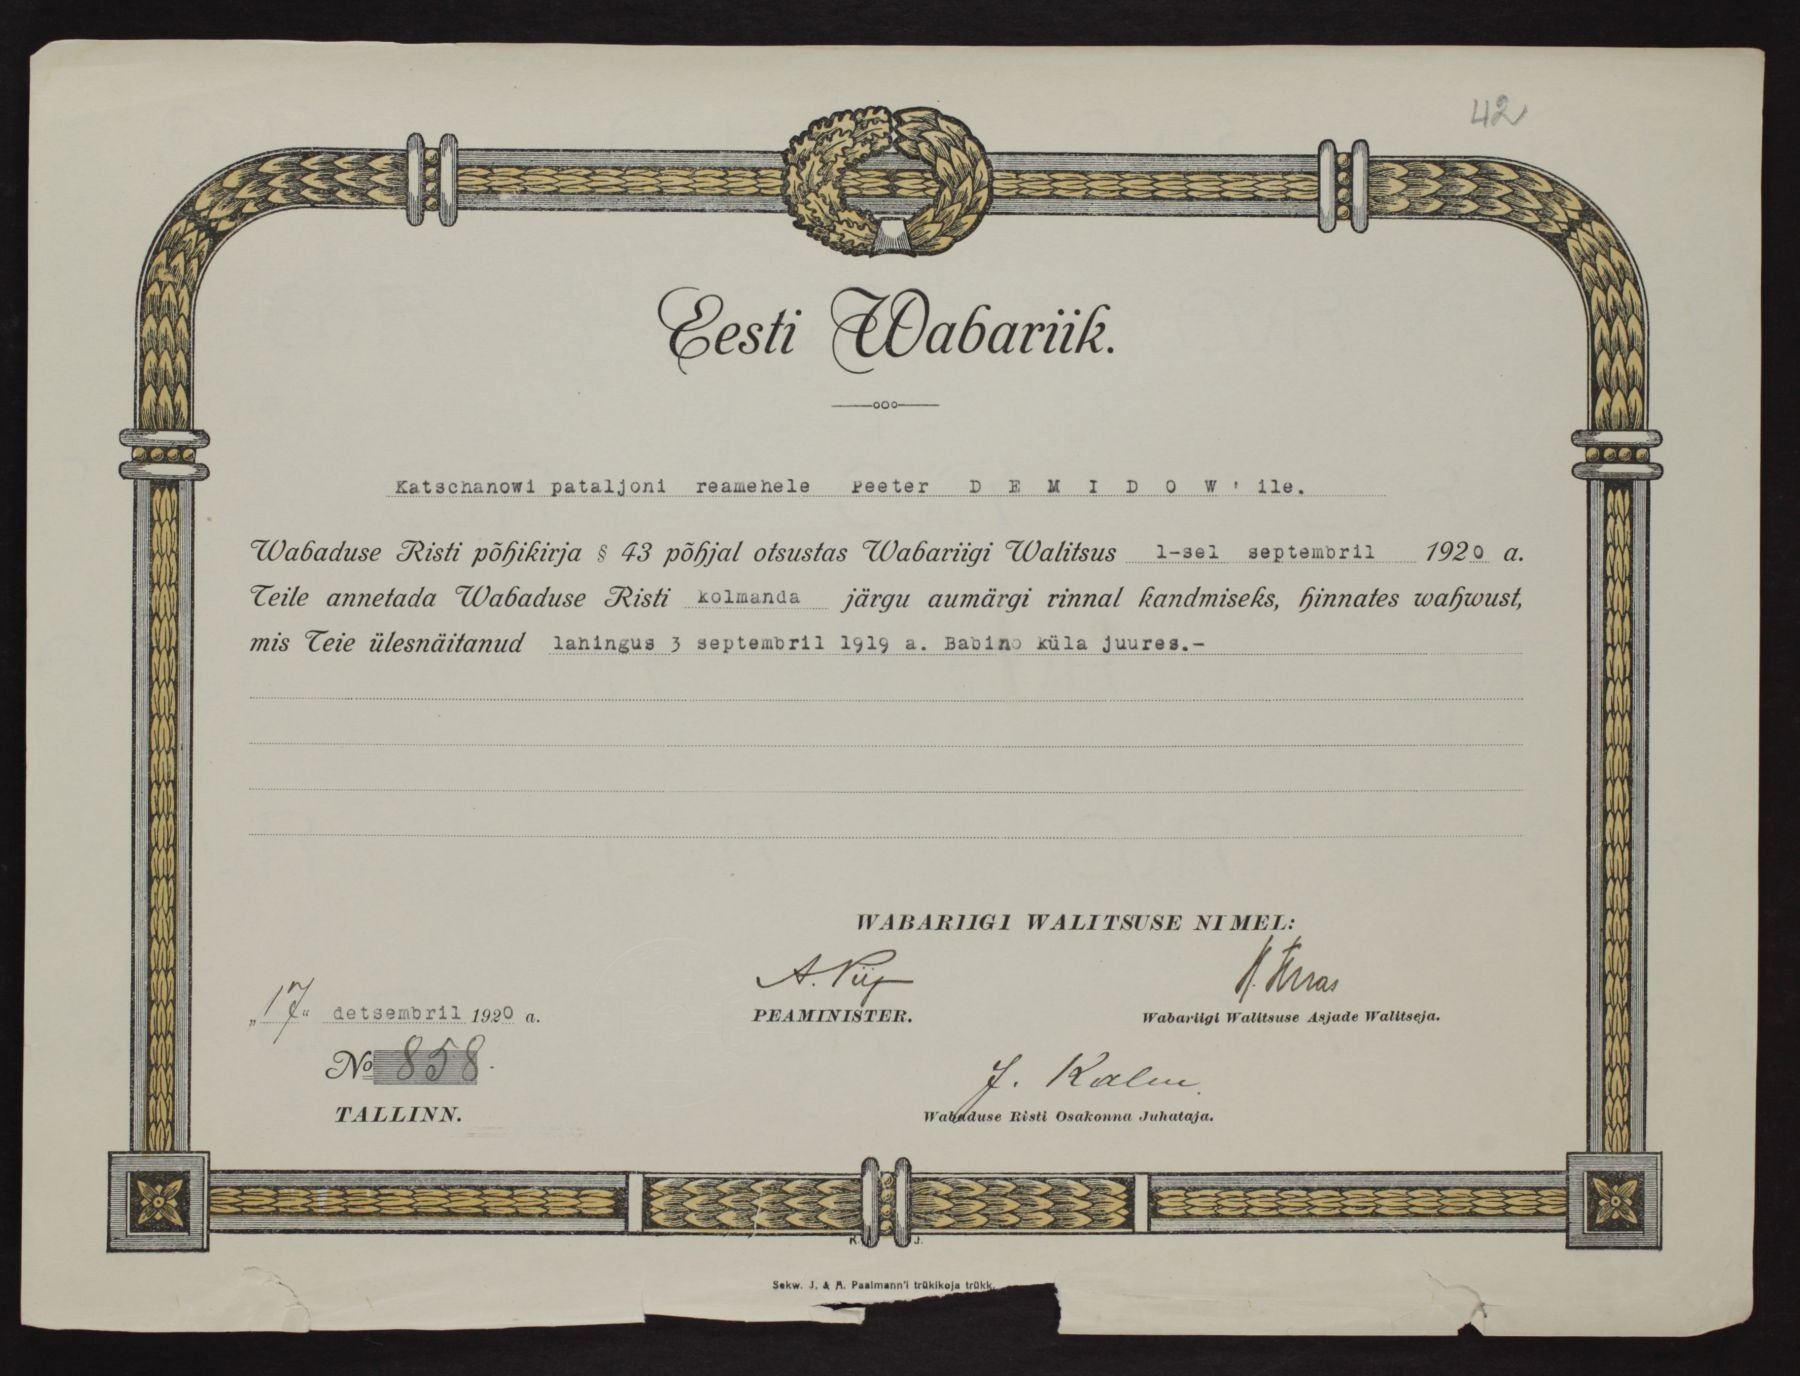 42
Eesti Wabariik.
Katschanowi pataljoni reamehele Peeter D E M I D O W'ile.
Wabaduse Risti põhikirja § 43 põhjal otsustas Wabariigi Walitsus 1-sel septembril 1920 a.
Teile annetada Wabaduse Risti kolmanda järgu aumärgi rinnal kandmiseks, hinnates wahwust,
mis Teie ülesnäitanud lahingus 3 septembril 1919 a. Babino küla juures.-
WABARIIGI WALITSUSE NIMEL:
A. Piip
PEAMINISTER.
K. Terras
Wabariigi Walitsuse Asjade Walitseja.
„17“ detsembril 1920 a.
No 858.
TALLINN.
J. Kalm.
Wabaduse Risti Osakonna Juhataja.
K. J.
Sekw. J. & A. Paalmann'i trükikoja trükk.